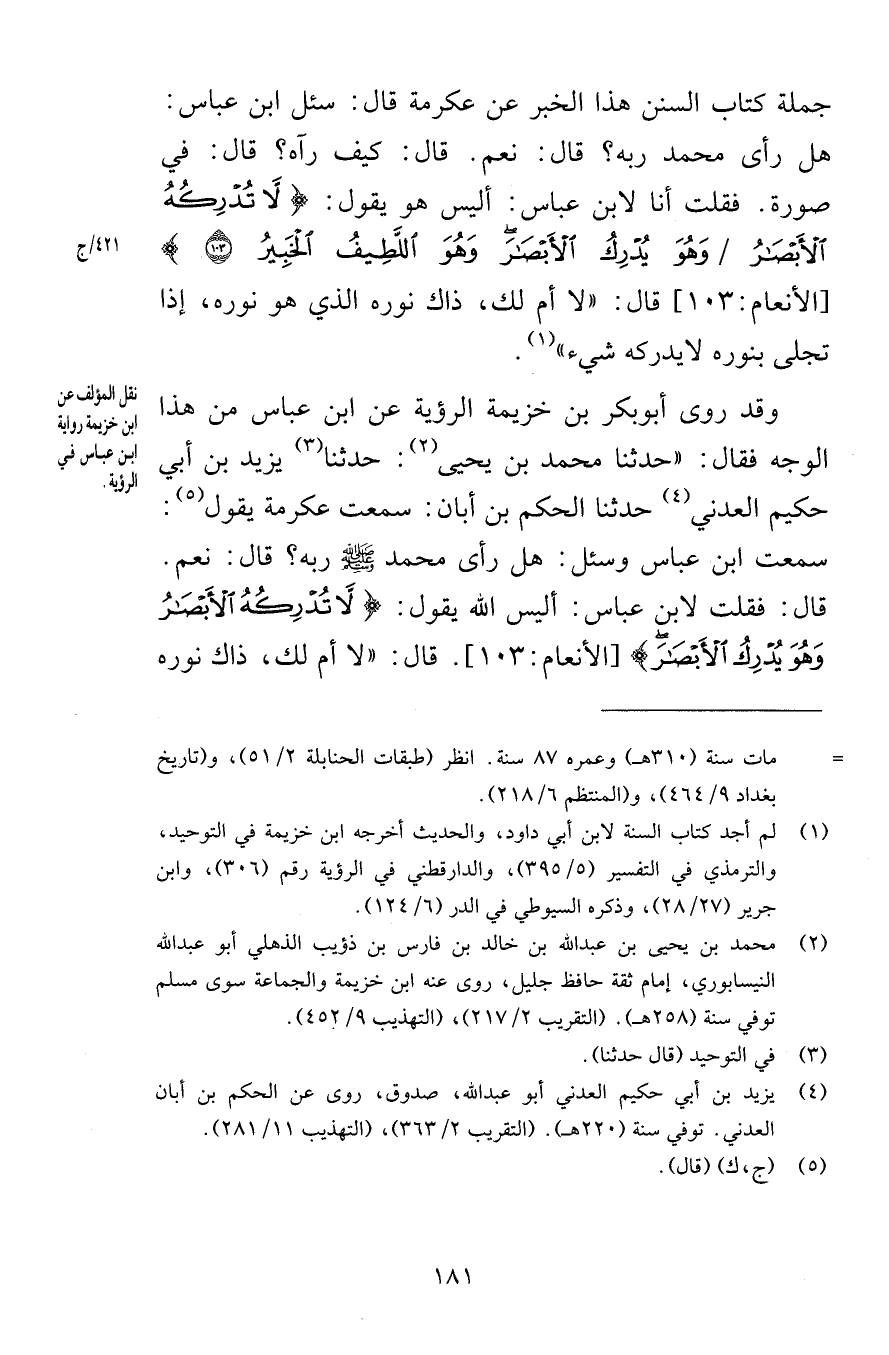 جملة كتاب السنن هذا الخبر عن عكرمة قال: سئل ابن عباس:
هل رأى محمد ربه؟ قال: نعم. قال: كيف رآه؟ قال: في
صورة. فقلت أنا لابن عباس: أليس هو يقول: ﴿ لَّا تُدْرِكُهُ
ٱلْأَبْصَٰرُ / وَهُوَ يُدْرِكُ ٱلْأَبْصَٰرَۖ وَهُوَ ٱللَّطِيفُ ٱلْخَبِيرُ ١٠٣ ﴾
٤٢١/ج
[الأنعام: ١٠٣] قال: «لا أم لك، ذاك نوره الذي هو نوره، إذا
تجلى بنوره لايدركه شيء»(١).
وقد روى أبوبكر بن خزيمة الرؤية عن ابن عباس من هذا
الوجه فقال: «حدثنا محمد بن يحيى(٢): حدثنا(٣) يزيد بن أبي
حكيم العدني(٤) حدثنا الحكم بن أبان: سمعت عكرمة يقول(٥):
سمعت ابن عباس وسئل: هل رأى محمد ﷺ ربه؟ قال: نعم.
قال: فقلت لابن عباس: أليس الله يقول: ﴿ لَّا تُدْرِكُهُ ٱلْأَبْصَٰرُ
وَهُوَ يُدْرِكُ ٱلْأَبْصَٰرَۖ ﴾ [الأنعام: ١٠٣]. قال: «لا أم لك، ذاك نوره
نقل المؤلف عن
ابن خزيمة رواية
ابن عباس في
الرؤية.
= مات سنة (٣١٠هـ) وعمره ٨٧ سنة. انظر (طبقات الحنابلة ٢/ ٥١)، و(تاريخ
بغداد ٩/ ٤٦٤)، و(المنتظم ٦/ ٢١٨).
(١) لم أجد كتاب السنة لابن أبي داود، والحديث أخرجه ابن خزيمة في التوحيد،
والترمذي في التفسير (٥/ ٣٩٥)، والدارقطني في الرؤية رقم (٣٠٦)، وابن
جرير (٢٧/ ٢٨)، وذكره السيوطي في الدر (٦/ ١٢٤).
(٢) محمد بن يحيى بن عبدالله بن خالد بن فارس بن ذؤيب الذهلي أبو عبدالله
النيسابوري، إمام ثقة حافظ جليل، روى عنه ابن خزيمة والجماعة سوى مسلم
توفي سنة (٢٥٨هـ). (التقريب ٢/ ٢١٧)، (التهذيب ٩/ ٤٥٢).
(٣) في التوحيد (قال حدثنا).
(٤) يزيد بن أبي حكيم العدني أبو عبدالله، صدوق، روى عن الحكم بن أبان
العدني. توفي سنة (٢٢٠هـ). (التقريب ٢/ ٣٦٣)، (التهذيب ١١/ ٢٨١).
(٥) (ج،ك) (قال).
١٨١